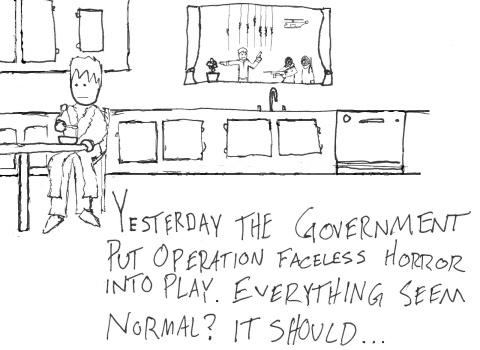 YESTERDAY THE GOVERNMENT
PUT OPERATION FACELESS HORROR
INTO PLAY. EVERYTHING SEEM
NORMAL? IT SHOULD...